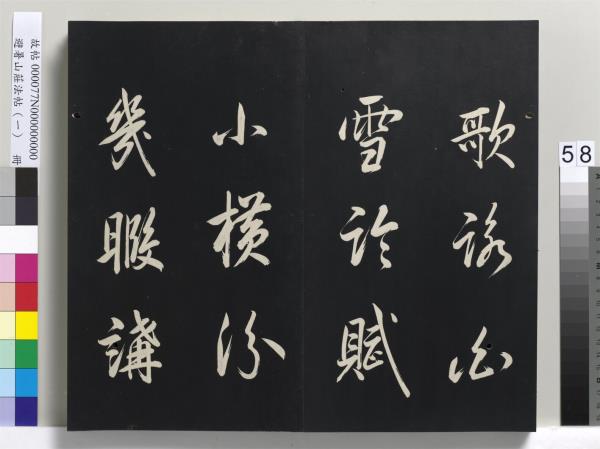 故帖 000077N0000000000
避暑山莊法帖（一） 冊
歌詠白
雪論賦
小橫汾
幾暇講
58